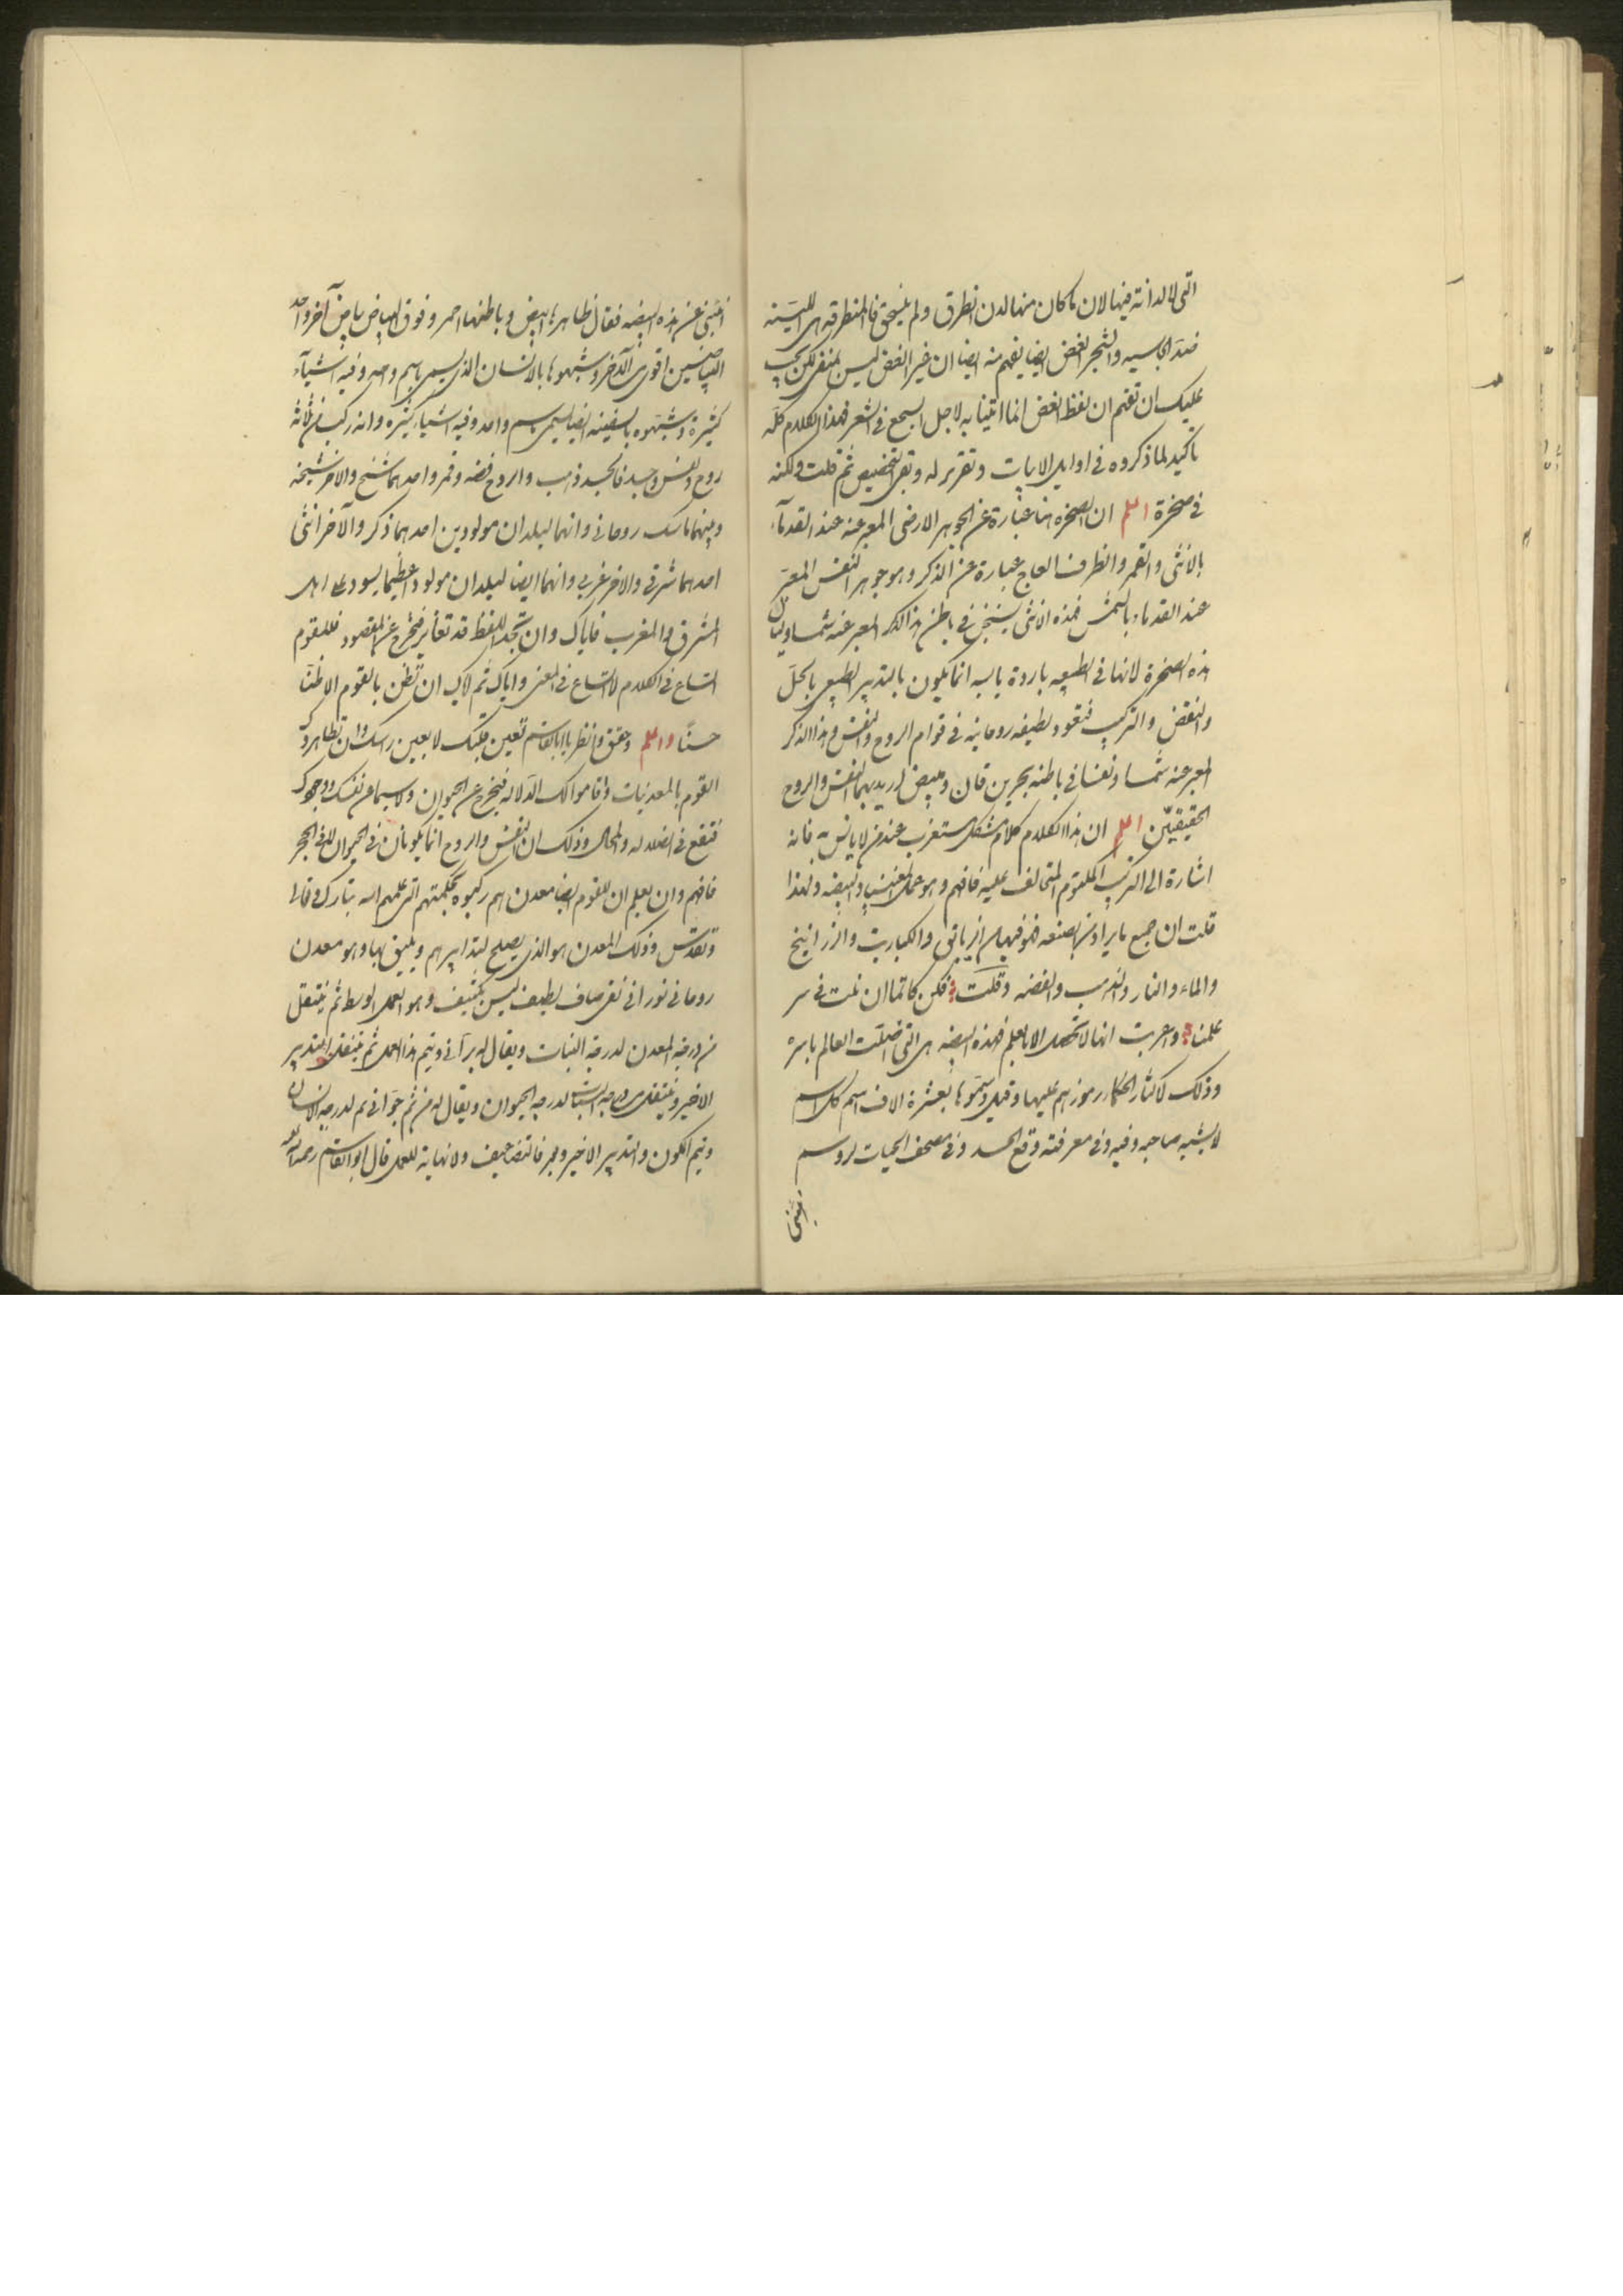 التى لا لدانة فيها لان ما كان منها لدن انطرق ولم ينسحق فالمنطرقه هى اللينه
ضد الجاسيه والشجر الغض ايضا يفهم منه ايضا ان غير الغض ليس بمنفى لكن يجب
عليك ان تفهم ان لفظ الغض انما اتينا به لاجل السجع فى الشعر فهذا الكلام كله
تاكيد لما ذكروه فى اوايل الابيات وتقرير له وبقى التخصيص ثم قلت ولكنه
فى صخرة اعلم ان الصخره هنا عبارة عن الجوهر الارضى المعبر عنه عند القدماء
بالانثى والقمر والظرف العاج عبارة عن الذكر وهو جوهر النفس المعبر
عند القدماء بالشمس فهذه الانثى يسخن فى باطن هذا الذكر المعبر عنه شمسا
هذه الصخرة لانها فى الطبيعه باردة يابسه انما يكون بالتدبير الطبيعى بالحل
والنقض والتركيب فتعود لطيفه روحانيه فى قوام الروح والنفس وهذا الذكر
المعبر عنه شمسا ونفسا فى باطنه بحرين قان وابيض اريد بهما النفس والروح
الحقيقيين اعلم ان هذا الكلام كلام مشكل مستغرب عند من لا يانس به فانه
اشارة الى التركيب المكتوم المتحالف عليه فافهم وهو عمل المغنيسيا والبيضه ولهذا
قلت ان جميع ما يراد من الصنعه فهو فيها من الزيابق والكباريت والزرانيخ
والماء والنار والذهب والفضه وقلت فكن كاتما ان نلت فى سر
علمنا وعربت انها لا تحصل الا بالعلم فهذه البيضه هى التى اضلت العالم باسره
وذلك لاكثار الحكماء رموزهم عليها وقيل وسموها بعشرة الاف اسم كل اسم
لا يشبه صاحبه وفيه وفى معرفته وقع الحسد وفى مصحف الحيات لروسم
اخبرنى عن هذه البيضه فقال ظاهرها ابيض وباطنها احمر وفوق البياض بياض آخر واحد
البياضين اقوى من الآخر وشبهوها بالانسان الذى يسمى باسم واحد وفيه اشياء
كثيرة وشبهوه بالسفينه ايضا يسمى باسم واحد وفيه اشياء كثيره وانه ركب من ثلاثة
روح ونفس وجسد فالجسد ذهب والروح فضه وقمر واحدهما شيخ والاخر شيخه
وبينهما ماسك روحانى وانهما ليلدان مولودين احدهما ذكر والآخر انثى
احدهما شرقى والاخر غربى وانهما ايضا ليلدان مولودا عظيما يسود على اهل
المشرق والمغرب فاياك وان تجد اللفظ قد تغاير فتخرج عن المقصود فللقوم
اتساع فى الكلام لا اتساع فى المعنى واياك ثم اياك ان تظن بالقوم الا ظنا
حسنا واعلم وحقق وانظر يا ابا القاسم بعين قلبك لا بعين راسك وان تظاهر لك
القوم بالمعدنيات واقاموا لك الدلاله فتخرج عن الحيوان ولا سيما عن نفسك ووجودك
فتقع فى الضلاله والمحال وذلك ان النفس والروح انما يكونان فى الحيوان لا فى الحجر
فافهم وان يعلم ان للقوم ايضا معدن هم ركبوه بحكمتهم التى علمهم الله تبارك وتعالى
وتقدس وذلك المعدن هو الذى يصلح لتدابيرهم ويليق بها وهو معدن
روحانى نورانى نقى صاف لطيف ليس بكثيف وهو العمل الاوسط ثم ينتقل
من درجة المعدن لدرجة النبات ويقال له برآنى ويتم هذا العمل ثم ينتقل للتدبير
الاخير وينتقل من درجة النبات لدرجة الحيوان ويقال له من ثم جوانى ثم لدرجة الانسان
ويتم الكون والتدبير الاخير فالتضاعيف ولا نهاية للعمل قال ابو القاسم رحمه الله